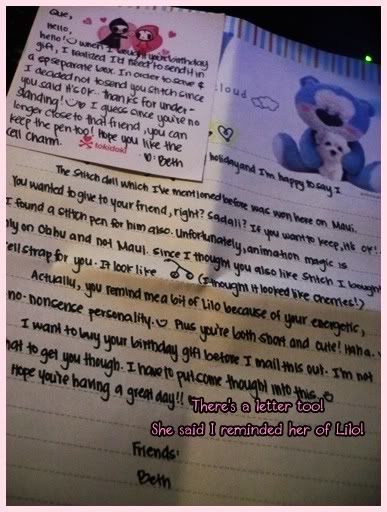 Que,
Hello,
hello! when I bought your birthday
gift, I realized I'd need to send it in
a separate box. In order to save $
I decided not to send you stitch since
you said it's ok. Thanks for under-
standing! I guess since you're no
longer close to that friend, you can
keep the pen too! Hope you like the
cell charm.
tokidoki
Beth
loud
holiday and I'm happy to say I
The Stitch doll which I've mentioned before was won here on Maui.
You wanted to give to your friend, right? Sadali? If you want to keep, it's ok!
I found a stitch pen for him also. Unfortunately, animation magic is
ly on Oahu and not Maui. Since I thought you also like Stitch I bought
ell strap for you. It look like (I thought it looked like cherries!)
Actually, you remind me a bit of Lilo because of your energetic,
no-nonsense personality. Plus you're both short and cute! Haha.
I want to buy your birthday gift before I mail this out. I'm not
hat to get you though. I have to put some thought into this.
Hope you're having a great day!!
There's a letter too!
She said I reminded her of Lilo!
Friends,
Beth